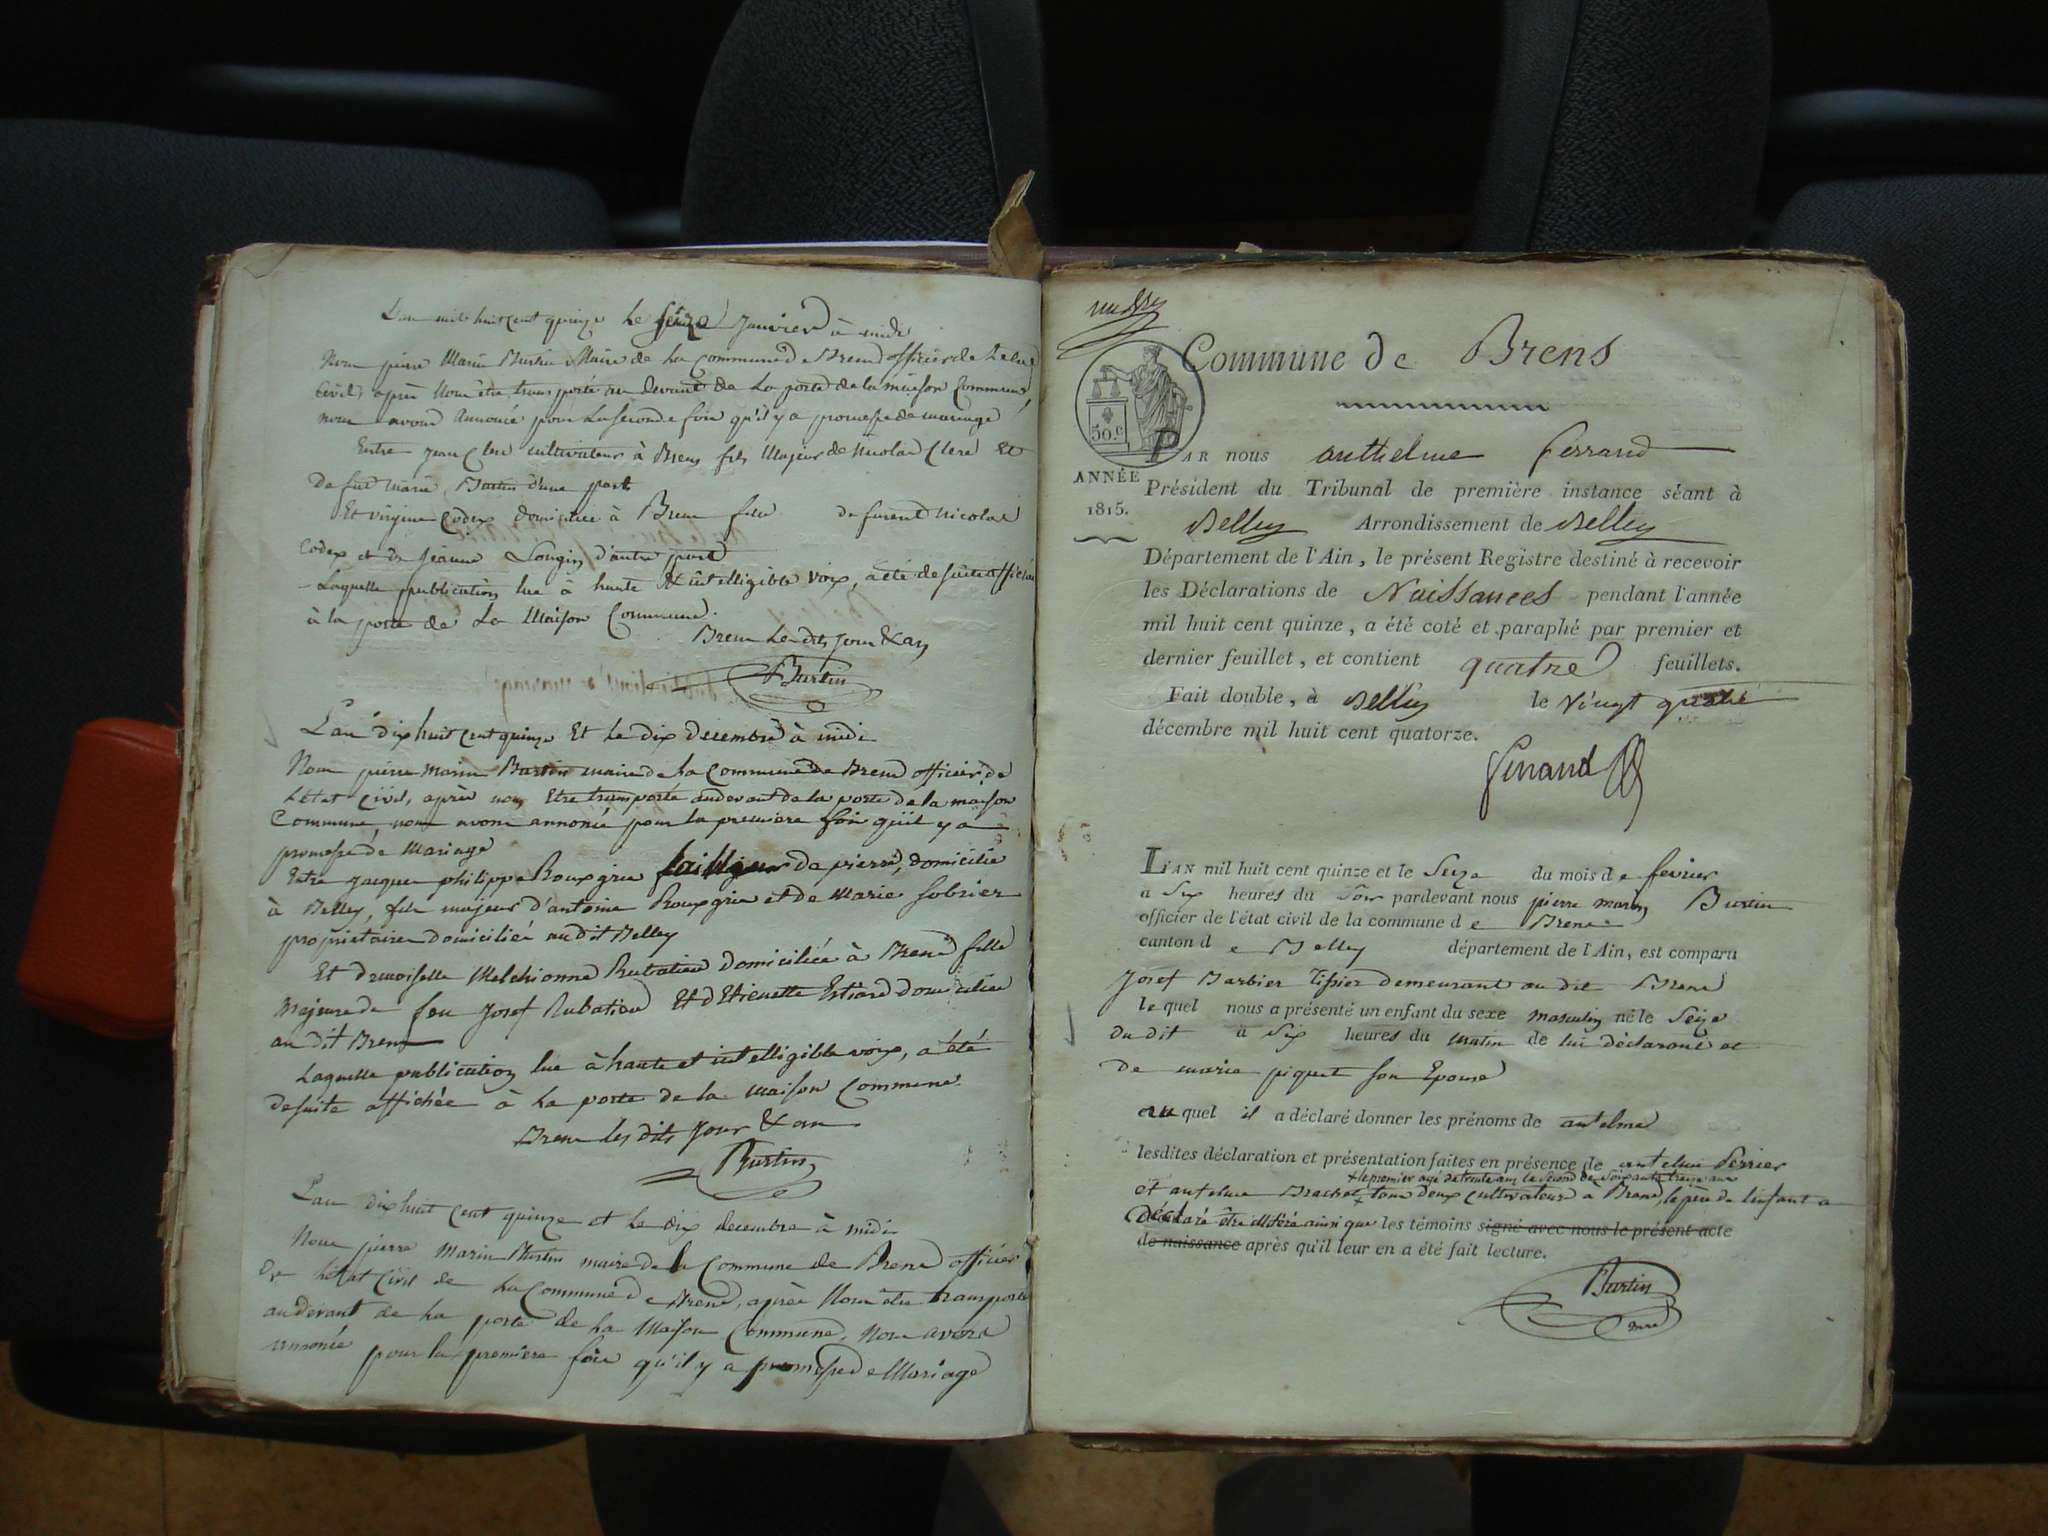 L'an mil huit cent quinze le seize Janvier à midi
Nous pierre Marin Burtin Maire de la Commune de Brens officier de Letat
Civil, après Nous être transporté au devant de La porte de la maison Commune
nous avons Annoncé pour La seconde fois qu'il y a promesse de mariage
Entre jean Clere cultivateur à Brens fils Majeur de Nicolas Clere Et
De fue marie Burtin d'une part
Et virginie Codex domiciliée à Brens fille de furent Nicolas
Codex et de Jeanne Longin d'autre part
Laquelle publication lue à haute & intelligible voix, a été de suite affichée
à la porte de La Maison Commune.
Brens Les dits jour & an
Burtin
L'an dix huit Cent quinze Et Le dix decembre à midi
Nous pierre marin Burtin maire de la Commune de Brens officier de
L'état civil, après nous Etre transporté au devant de la porte de la maison
Commune, nous avons annoncé pour la premiere fois qu'il y a
promesse de Mariage
Entre jacque philippe Rouxgrie de pierre, domicilié
à Belley, fils majeur d'antoine Rouxgrie et de Marie Sobrier
proprietaires domiciliés audit Belley
Et demoiselle Melchionne Rubatiou domiciliée à Brens fille
Majeure de feu Josef Rubatiou Et d'Etienette domiciliée
au dit Brens
Laquelle publication lue à haute et intelligible voix, a été
de suite affichée à La porte de la maison Commune.
Brens les dits jour & an
Burtin
L'an dix huit Cent quinze et Le dix decembre à midi
Nous pierre Marin Burtin maire de la Commune de Brens officier
De L'état Civil de La Commune de Brens, après Nous être transporté
au devant de La porte de La Maison Commune, Nous avons
annoncé pour la premiere fois qu'il y a promesse de Mariage
Commune de Brens
50.c
ANNÉE
1815.
PAR nous anthelme ferrand
Président du Tribunal de première instance séant à
Belley Arrondissement de Belley
Département de l'Ain, le présent Registre destiné à recevoir
les Déclarations de Naissances pendant l'année
mil huit cent quinze, a été coté et paraphé par premier et
dernier feuillet, et contient quatre feuillets.
Fait double, à Belley le Vingt quatre
décembre mil huit cent quatorze.
ferrand
L'AN mil huit cent quinze et le Seize du mois de fevrier
a Six heures du Soir pardevant nous pierre marin Burtin
officier de l'état civil de la commune de Brens
canton de Belley département de l'Ain, est comparu
Josef Barbier tissier demeurant au dit Brens
le quel nous a présenté un enfant du sexe masculin né le Seize
du dit à Six heures du matin de lui déclarant et
De marie piquet son Epouse
au quel il a déclaré donner les prénoms de antelme
lesdites déclaration et présentation faites en présence de antelme Perrier
+ le premier agé de trente ans le second de Soixante treize ans
et antelme Brachet + tous deux cultivateur a Brens, le père de l'enfant a
Déclaré être illitéré ainsi que les témoins signé avec nous le présent acte
de naissance après qu'il leur en a été fait lecture.
Burtin
mre